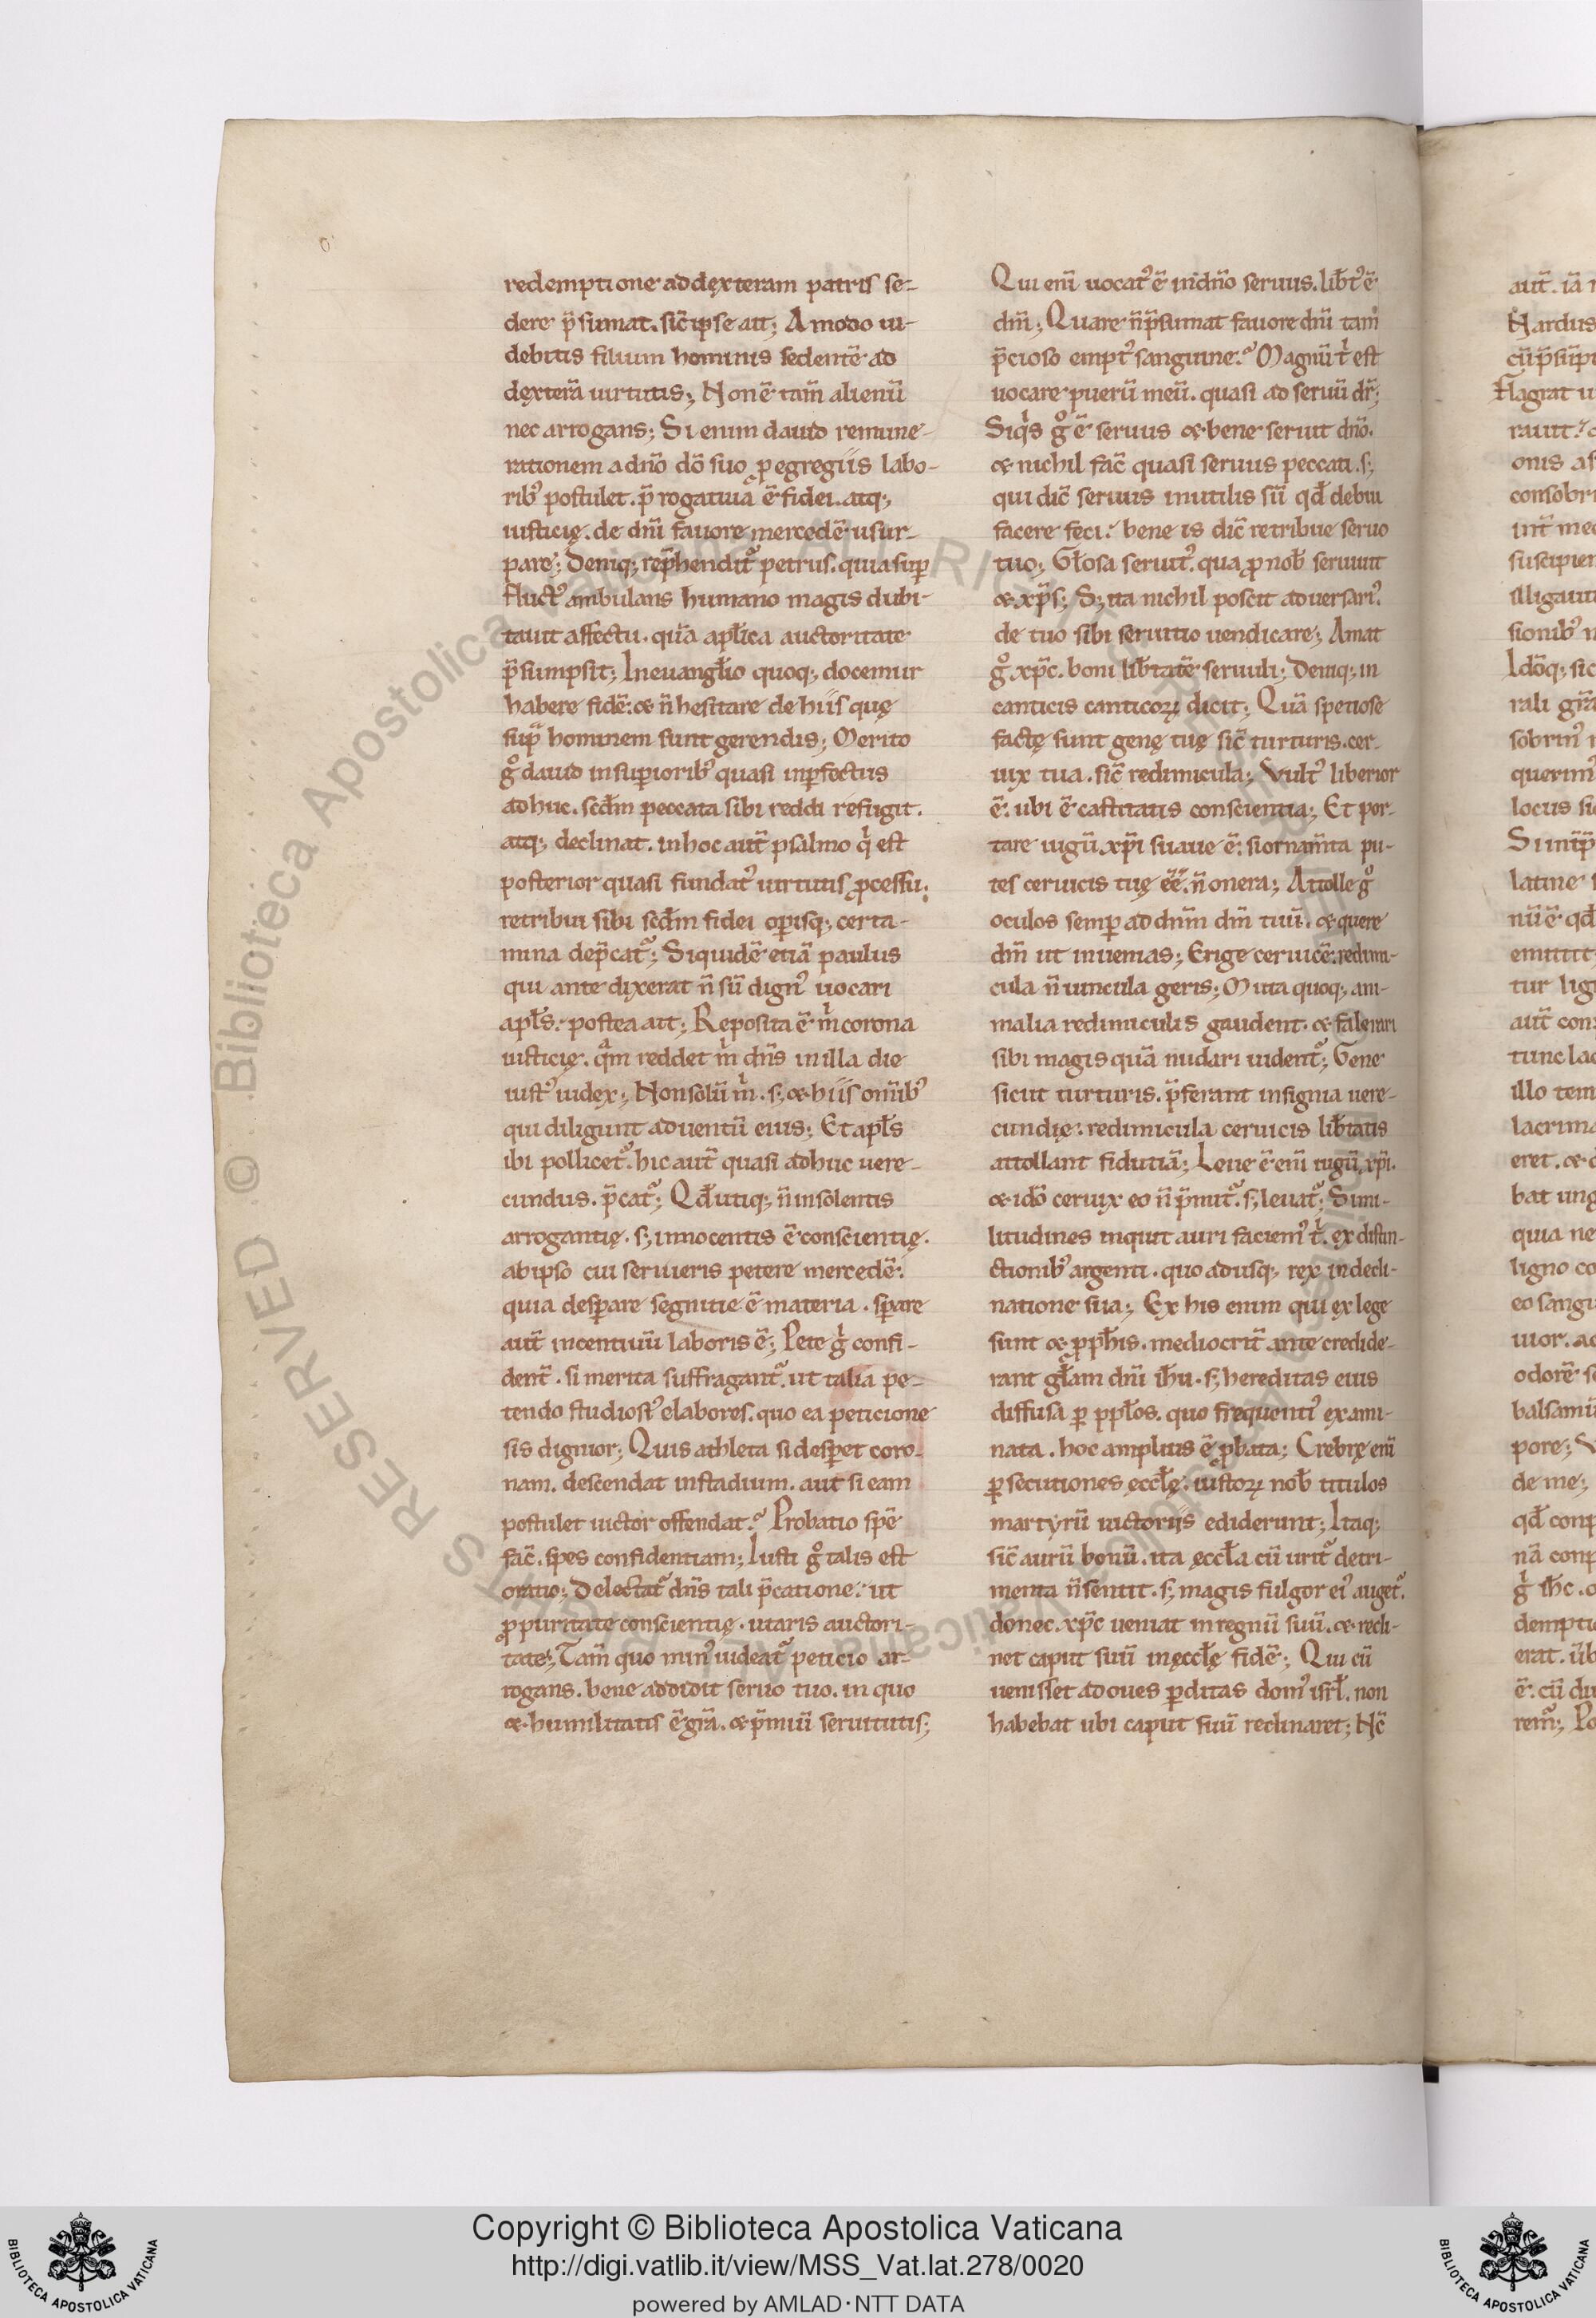 redemptione ad dęxteram patris se-
dere p̄sumat. sic̄ ipse ait; Amodo ui-
debitis filium hominis sedentē ad
dęxterā uirtutis; Non ē tam̄ alienū
nec arrogans; Si enim dauid remune-
rationem a dn̄o dō suo ꝓ egregiis labo-
rib᾽ postulet. p̄rogatiuā ē fidei. atq;
iusticię. de dn̄i fauore mercedē usur-
pare; Deniq; rep̄hendit᷑ petrus. quia sup̄
fluct᾽ ambulans humano magis dubi-
tauit affectu. quā apl̄ica auctoritate
p̄sumpsit; In euangl̄io quoq; docemur
habere fidē: & n̄ hesitare de hiis quę
sup̄ hominem sunt gerendis; Merito
gͦ dauid in sup̄iorib᾽ quasi inp̄fectus
adhuc. scd̄m peccata sibi reddi refugit.
atq; declinat. in hoc aut̄ psalmo qͥ est
posterior quasi fundat᾽ uirtutis ꝓcessu;
retribui sibi scd̄m fidei op̄isq; certa-
mina dep̄cat᷑; Siquidē etiā paulus
qui ante dixerat n̄ sū dign᾽ uocari
apl̄s: postea ait; Reposita ē mͥ corona
iusticię. qͣm reddet mͥ dn̄s in illa die
iust᾽ iudex; Non solū mͥ. s; & hiis omīb᾽
qui diligunt aduentū eius; Et apl̄s
ibi pollicet᷑. hic aut̄ quasi adhuc uere-
cundus. p̄cat᷑; Qd̄ utiq; n̄ insolentis
arrogantię. s; innocentis ē conscientię.
ab ipso cui seruieris petere mercedē:
quia desp̄are segnitie ē materia. sp̄are
aut̄ incentiuū laboris ē; Pete gͥ confi-
dent̄. si merita suffragant᷑. ut talia pe-
tendo studiosi᾽ elabores. quo ea peticione
sis dignior; Quis athleta si desp̄et coro-
nam. descendat in stadium. aut si eam
postulet uictor offendat? Probatio spē
fac̄. spes confidentiam; Iusti gͦ talis est
oratio; Delectat᷑ dn̄s tali p̄catione: ut
ꝓ puritate conscientię. utaris auctori-
tate; Tam̄ quo min᾽ uideat᷑ peticio ar-
rogans. bene addidit seruo tuo. in quo
& humilitatis ē grā. & p̄miū seruitutis;
Qui enī uocat᾽ ē in dn̄o seruus. lib̄t᾽ ē
dn̄i; Quare n̄ p̄sumat fauore dn̄i tam
p̄cioso empt᾽ sanguine? Magnū tͥ est
uocare puerū meū. quasi ad seruū dr̄;
Siqͥs gͦ ē seruus & bene seruit dn̄o.
& nichil fac̄ quasi seruus peccati. s;
qui dic̄ seruus inutilis sū qd̄ debui
facere feci? bene is dic̄ retribue seruo
tuo; Gl̄osa seruit᾽. qua ꝓ nob̄ seruiuit
& xp̄s; S; ita nichil poscit aduersari᾽.
de tuo sibi seruitio uendicare; Amat
gͦ xp̄c. boni lib̄tatē seruuli; Deniq; in
canticis canticoꝝ dicit; Quā speciose
factę sunt genę tuę sic̄ turturis. cer-
uix tua. sic̄ redimicula; Vult᾽ liberior
ē: ubi ē castitatis conscientia; Et por-
tare iugū xp̄i suaue ē: si ornam̄ta pu-
tes ceruicis tuę ēē. n̄ onera; Attolle gͦ
oculos semp̄ ad dn̄m dm̄ tuū. & quere
dm̄ ut inuenias; Erige ceruicē: redimi-
cula n̄ uincula geris; Muta quoq; ani-
malia redimiculis gaudent. & falerari
sibi magis quā nudari uident᷑; Gene
sicut turturis. p̄ferant insignia uere-
cundię: redimicula ceruicis lib̄tatis
attollant fidutiā; Leue ē enī iugū xp̄i.
& idō ceruix eo n̄ p̄mit᷑. s; leuat᷑; Simi-
litudines inquit auri faciem᾽ tͥ. ex distin-
ctionib᾽ argenti. quo adusq; rex in decli-
natione sua; Ex his enim qui ex lege
sunt & ꝓph̄is. mediocrit̄ ante credide-
rant gl̄am dn̄i ih̄u. s; hereditas eius
diffusa ꝑ ppl̄os. quo frequenti᾽ exami-
nata. hoc amplius ē ꝓbata; Crebrę enī
ꝑsecutiones ęccl̄ę: iustoꝝ nob̄ titulos
martyrū uictoriis ediderunt; Itaq;
sic̄ aurū bonū. ita ęccl̄a cū urit᷑ detri-
menta n̄ sentit. s; magis fulgor ei᾽ auget᷑.
donec xp̄c ueniat in regnū suū. & recli-
net caput suū in ęccl̄ę fidē; Qui cū
uenisset ad oues ꝑditas dom᾽ isrl̄. non
habebat ubi caput suū reclinaret; Nc̄
Copyright © Biblioteca Apostolica Vaticana
http://digi.vatlib.it/view/MSS_Vat.lat.278/0020
powered by AMLAD·NTT DATA
BIBLIOTECA APOSTOLICA VATICANA
BIBLIOTECA APOSTOLICA VATICANA